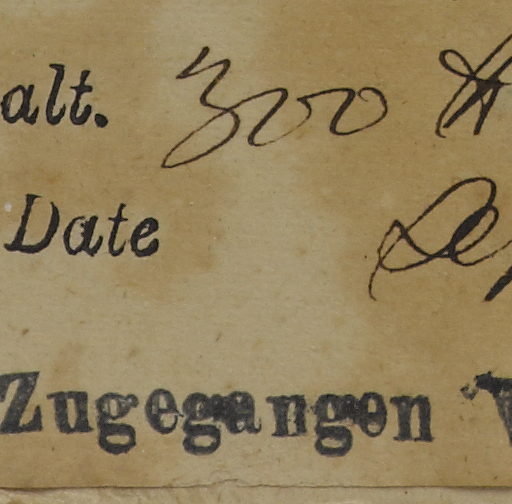 alt. 300 ft
Date
Zugegangen